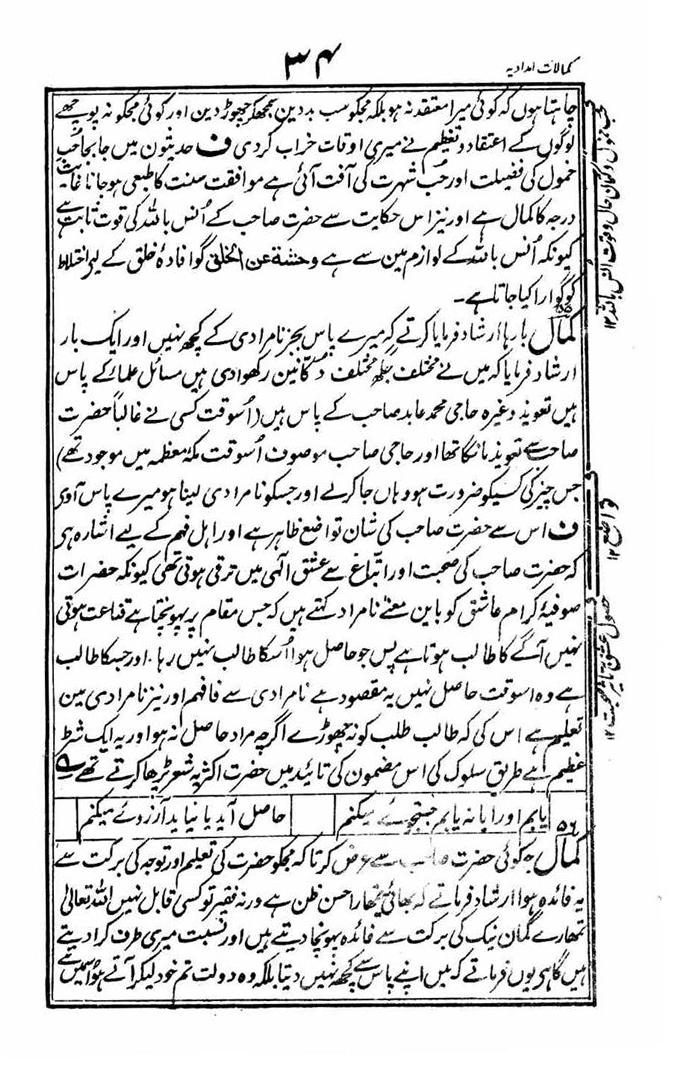 ۳۴
کمالات امدادیہ
چاہتا ہوں کہ کوئی میرا معتقد نہ ہو بلکہ مجکو سب بددین سمجھکر چھوڑ دین اور کوئی مجکو نہ پوچھے
لوگوں کے اعتقاد و تعظیم نے میری اوقات خراب کردی ف حدیثون میں جابجا حُبِ
خمول کی فضیلت اور حُب شہرت کی آفت آئی ہے موافقت سنت کا طبعی ہو جانا غایت
درجہ کا کمال ہے اور نیز اس حکایت سے حضرت صاحب کے اُنس باللہ کی قوت ثابت ہے
کیونکہ اُنس باللہ کے لوازم مین سے ہے وحشة عن الخلق گو افادۂ خلق کے لیے اختلاط
کو گوارا کیا جاتا ہے۔
کمال ۵۵ بارہا ارشاد فرمایا کرتے کہ میرے پاس بجز نامرادی کے کچھ نہیں اور ایک بار
ارشاد فرمایا کہ میں نے مختلف جگھ مختلف دکانین رکھوادی ہیں مسائل علما کے پاس
ہیں تعویذ وغیرہ حاجی محمد عابد صاحب کے پاس ہیں (اُسوقت کسی نے غالباً حضرت
صاحب سے تعویذ مانگا تھا اور حاجی صاحب موصوف اُسوقت مکہ معظمہ میں موجود تھے)
جس چیز کی کسیکو ضرورت ہو وہاں جا کر لے اور جسکو نامرادی لینا ہو میرے پاس آوی
ف اس سے حضرت صاحب کی شان تواضع ظاہر ہے اور اہل فہم کے لیے اشارہ ہی
کہ حضرت صاحب کی صحبت اور اتباع سے عشق الٰہی میں ترقی ہوتی تھی کیونکہ حضرات
صوفیۂ کرام عاشقی کو باین معنے نامراد کہتے ہیں کہ جس مقام پر پہونچتا ہے قناعت ہوتی
نہیں آگے کا طالب ہوتا ہے پس جو حاصل ہوا اُسکا طالب نہیں رہا۔ اور جسکا طالب
ہے وہ اسوقت حاصل نہیں یہ مقصود ہے نامرادی سے فافہم اور نیز نامرادی مین
تعلیم ہے اس کی کہ طالب طلب کو نہ چھوڑے اگرچہ مراد حاصل نہ ہو اور یہ ایک شرط
عظیم ہے طریق سلوک کی اس مضمون کی تائید میں حضرت اکثر یہ شعر پڑھا کرتے تھے ؎
یابم اورا یا نہ یابم جستجوئے میکنم حاصل آید یا نیاید آرزوئے میکنم
کمال ۵۶ جو کوئی حضرت صاحب سے عرض کرتا کہ مجکو حضرت کی تعلیم اور توجہ کی برکت سے
یہ فائدہ ہوا ارشاد فرماتے کہ بھائی تمھارا حسن ظن ہے ورنہ فقیر تو کسی قابل نہیں اللہ تعالیٰ
تمھارے گمان نیک کی برکت سے فائدہ پہونچا دیتے ہیں اور نسبت میری طرف کرا دیتے
ہیں گاہے یوں فرماتے کہ میں اپنے پاس سے کچھ نہیں دیتا بلکہ وہ دولت تم خود لیکر آتے ہو اسمیں سے
حب خمول و کتمان حال و قوت انس باللہ ۱۲
تواضع ۱۲
حصول عشق بتاثیر صحبت ۱۲